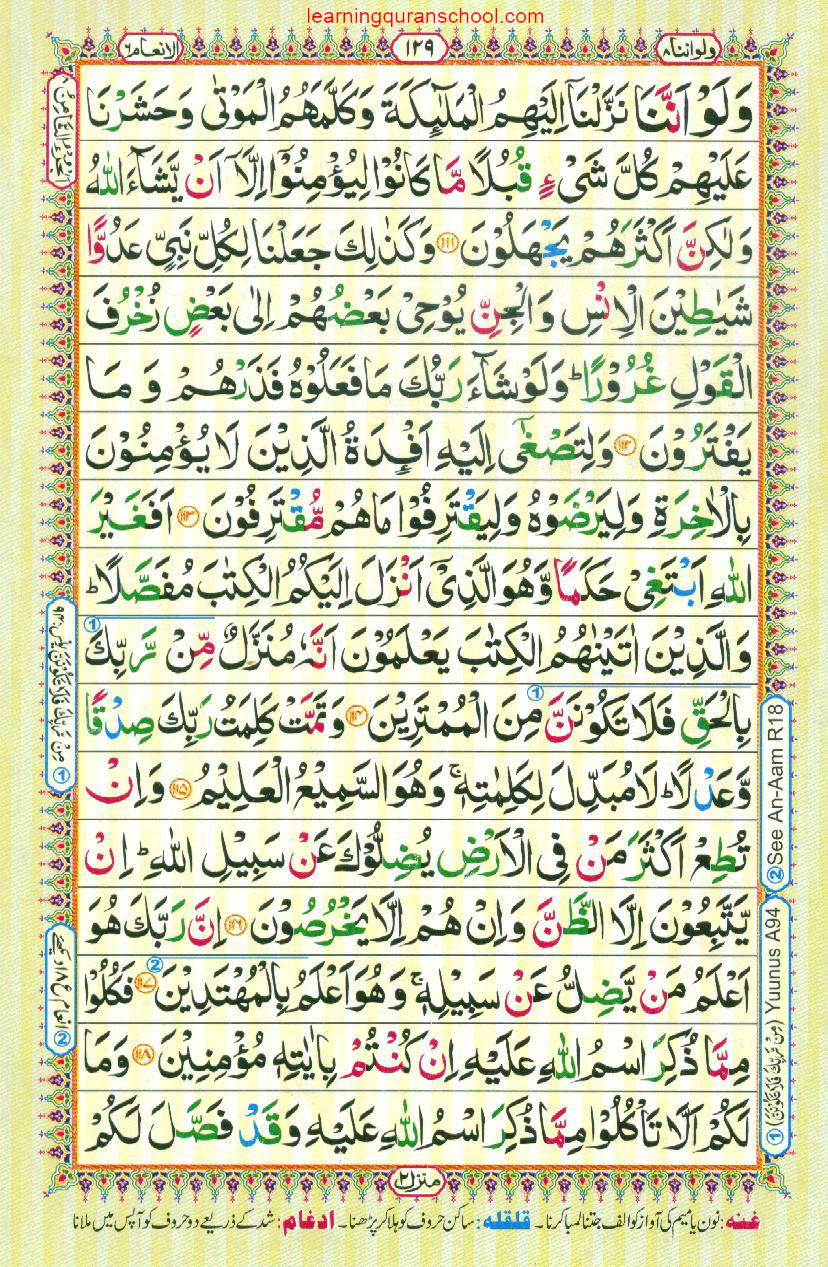 learningquranschool.com
ولواننا ۸
۱۲۹
الانعام ۶
وَلَوْ اَنَّنَا نَزَّلْنَاۤ اِلَيْهِمُ الْمَلٰٓئِكَةَ وَكَلَّمَهُمُ الْمَوْتٰى وَحَشَرْنَا
عَلَيْهِمْ كُلَّ شَیْءٍ قُبُلًا مَّا كَانُوْا لِيُؤْمِنُوْۤا اِلَّاۤ اَنْ يَّشَآءَ اللّٰهُ
وَلٰكِنَّ اَكْثَرَهُمْ يَجْهَلُوْنَ ۝۱۱۱ وَكَذٰلِكَ جَعَلْنَا لِكُلِّ نَبِيٍّ عَدُوًّا
شَيٰطِيْنَ الْاِنْسِ وَالْجِنِّ يُوْحِيْ بَعْضُهُمْ اِلٰى بَعْضٍ زُخْرُفَ
الْقَوْلِ غُرُوْرًا ؕ وَلَوْ شَآءَ رَبُّكَ مَا فَعَلُوْهُ فَذَرْهُمْ وَ مَا
يَفْتَرُوْنَ ۝۱۱۲ وَلِتَصْغٰۤى اِلَيْهِ اَفْـِٕدَةُ الَّذِيْنَ لَا يُؤْمِنُوْنَ
بِالْاٰخِرَةِ وَلِيَرْضَوْهُ وَلِيَقْتَرِفُوْا مَا هُمْ مُّقْتَرِفُوْنَ ۝۱۱۳ اَفَغَيْرَ
اللّٰهِ اَبْتَغِيْ حَكَمًا وَّهُوَ الَّذِيْۤ اَنْزَلَ اِلَيْكُمُ الْكِتٰبَ مُفَصَّلًا ؕ
وَالَّذِيْنَ اٰتَيْنٰهُمُ الْكِتٰبَ يَعْلَمُوْنَ اَنَّهٗ مُنَزَّلٌ مِّنْ رَّبِّكَ
بِالْحَقِّ فَلَا تَكُوْنَنَّ مِنَ الْمُمْتَرِيْنَ ۝۱۱۴ وَتَمَّتْ كَلِمَتُ رَبِّكَ صِدْقًا
وَّعَدْلًا ؕ لَا مُبَدِّلَ لِكَلِمٰتِهٖ ۚ وَهُوَ السَّمِيْعُ الْعَلِيْمُ ۝۱۱۵ وَاِنْ
تُطِعْ اَكْثَرَ مَنْ فِي الْاَرْضِ يُضِلُّوْكَ عَنْ سَبِيْلِ اللّٰهِ ؕ اِنْ
يَّتَّبِعُوْنَ اِلَّا الظَّنَّ وَاِنْ هُمْ اِلَّا يَخْرُصُوْنَ ۝۱۱۶ اِنَّ رَبَّكَ هُوَ
اَعْلَمُ مَنْ يَّضِلُّ عَنْ سَبِيْلِهٖ ۚ وَهُوَ اَعْلَمُ بِالْمُهْتَدِيْنَ ۝۱۱۷ فَكُلُوْا
مِمَّا ذُكِرَ اسْمُ اللّٰهِ عَلَيْهِ اِنْ كُنْتُمْ بِاٰيٰتِهٖ مُؤْمِنِيْنَ ۝۱۱۸ وَمَا
لَكُمْ اَلَّا تَاْكُلُوْا مِمَّا ذُكِرَ اسْمُ اللّٰهِ عَلَيْهِ وَقَدْ فَصَّلَ لَكُمْ
② See An-Aam R18
① (مِنْ رَّبِّكَ فَلَا تَكُوْنَنَّ) Yuunus A94
منزل ۲
غنه: نون یا میم کی آواز کو الف جتنا لمبا کرنا۔ قلقله: ساکن حروف کو ہلا کر پڑھنا۔ ادغام: شد کے ذریعے دو حروف کو آپس میں ملانا